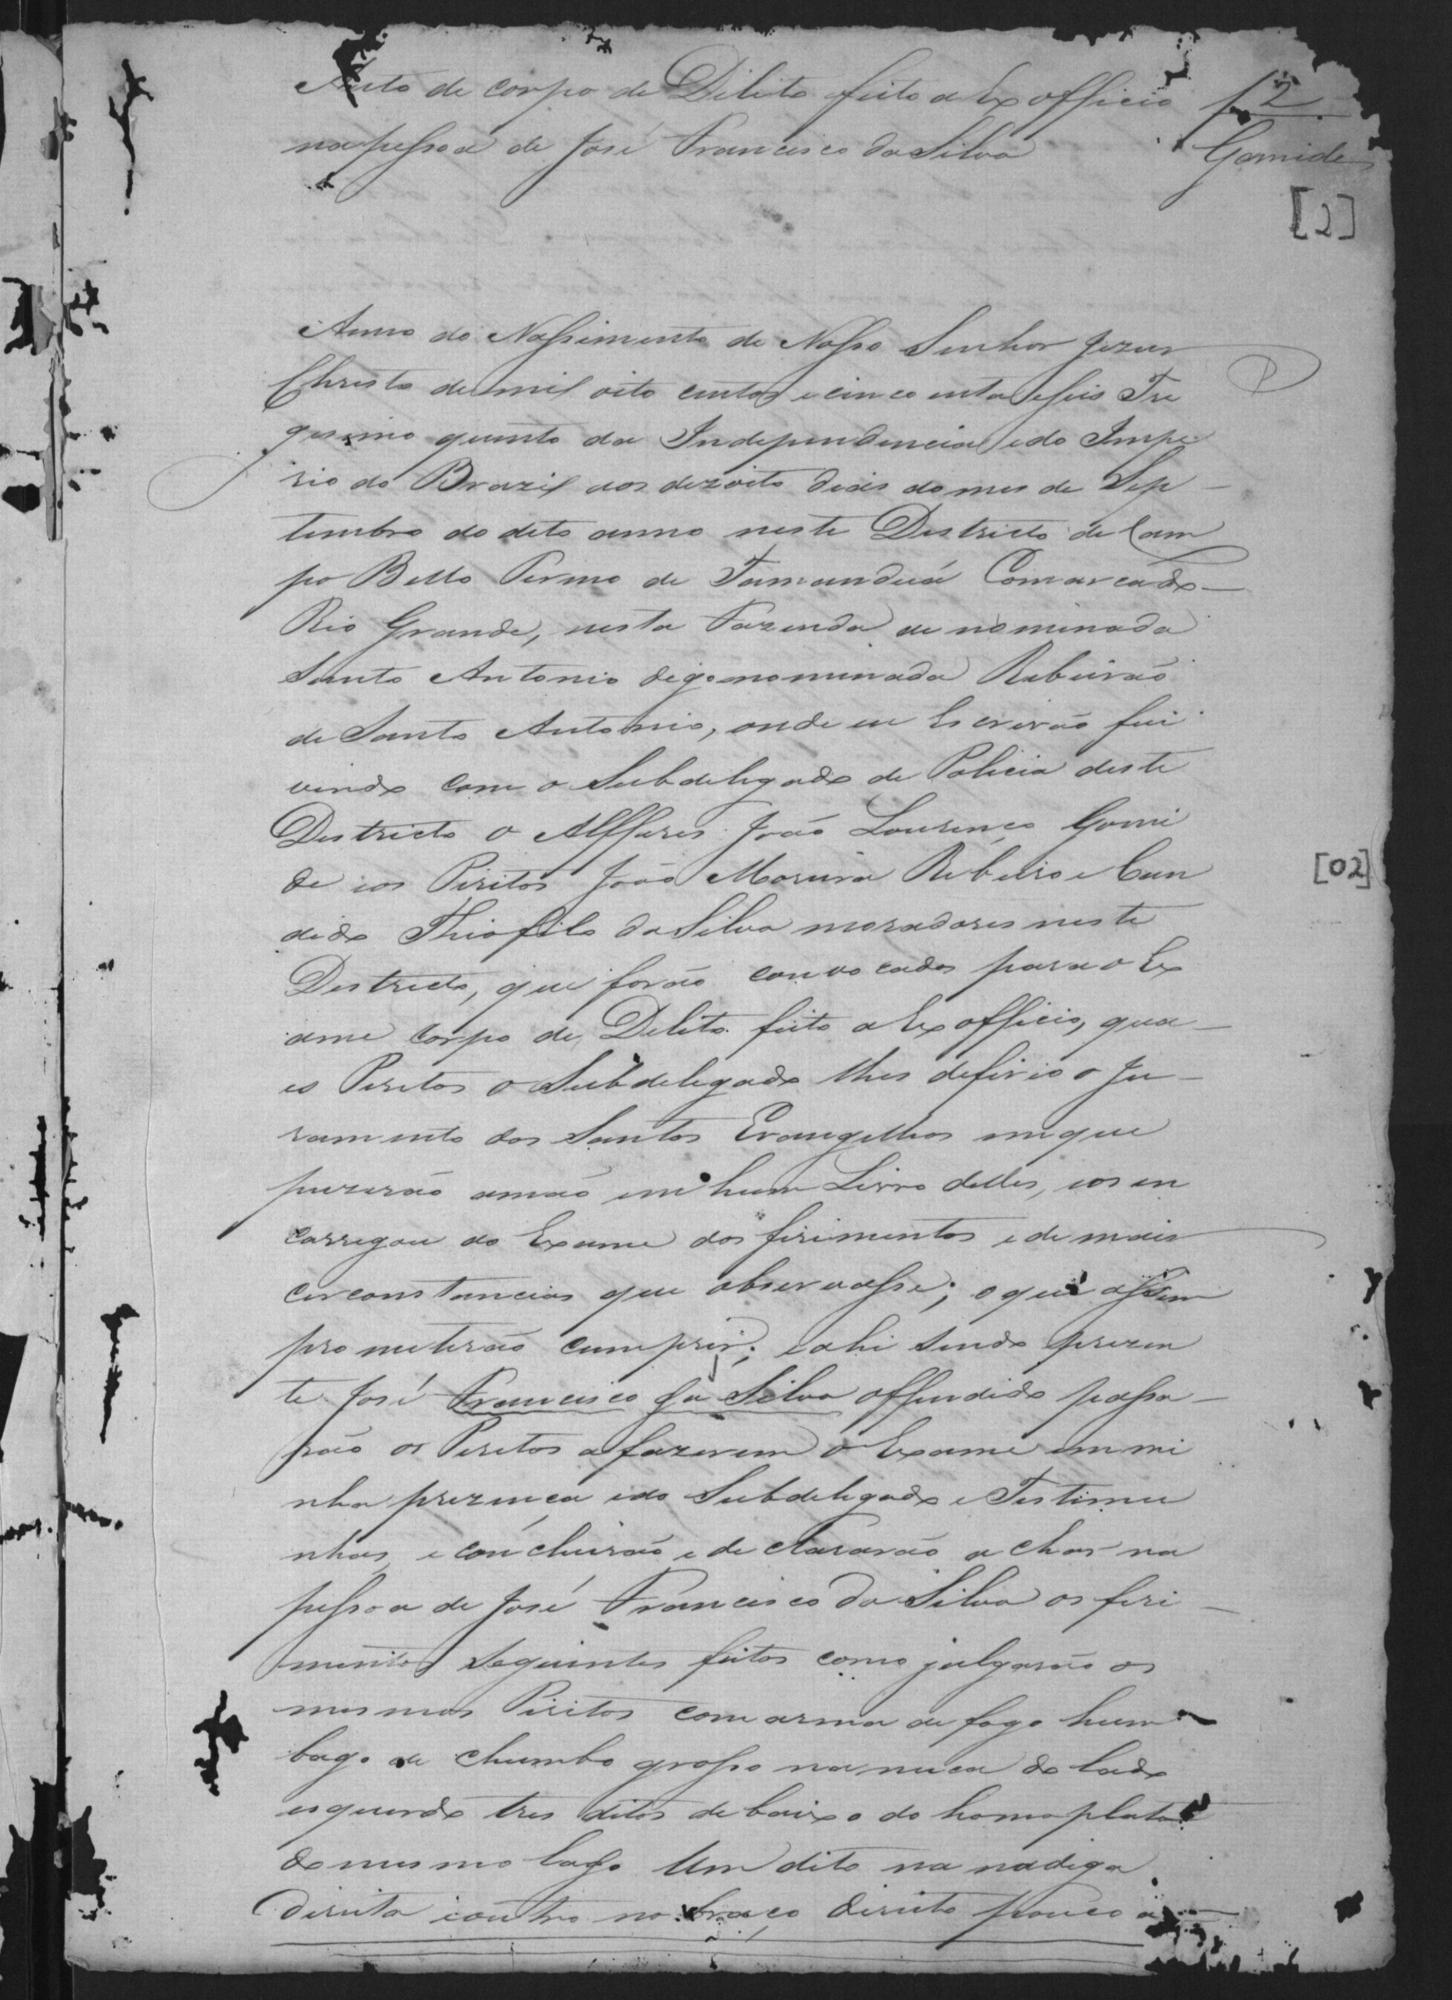 Auto de corpo de Dilito feito a Ex officio
na pessoa de José Francisco da Silva
2
Gomide
[2]
Anno do Nassimento de Nosso Senhor Jezus
Christo de mil oito centos e cincoenta e seis Tre
gesimo quinto da Independencia e do Impe
rio do Brazil aos dezoito dias do mes de Sep
tembro do dito anno neste Districto de Cam
po Bello Termo de Tamanduá Comarca do
Rio Grande, nesta Fazenda de nominada
Santo Antonio digo nominada Ribeirão
de Santo Antonio, onde eu Escrivão fui
vindo com o Subdelegado de Policia deste
Districto o Alfferes João Lourenço Gomi
de e os Piritos João Moreira Ribeiro e Can
dido Thiofilo da Silva moradores neste
Districto, que forão convocados para o Ex
ame corpo de Delito feito a Ex officio, qua
es Peritos o Subdelegado lhes defirio o Ju
ramento dos Santos Evangelhos em que
puzerão a mão em hum Livro delles, e os en
carregou do Exame dos firimentos e de mais
circonstancias que observasse; o que assim
prometerão cumprir; e ahi sendo prezen
te José Francisco da Silva offendido passa
rão os Peritos a fazerem o Exame em mi
nha prezença e do Subdelegado e Testimu
nhas, e concluirão e declararão achar na
pessoa de José Francisco da Silva os firi
mentos seguintes feitos como julgarão os
mesmos Piritos com arma de fogo hum
bago de chumbo grosso na nuca do lado
esquerdo tres ditos de baixo do homoplata
do mesmo lado Um dito na nadiga
direita e outro no braço direito pouco a
[02]